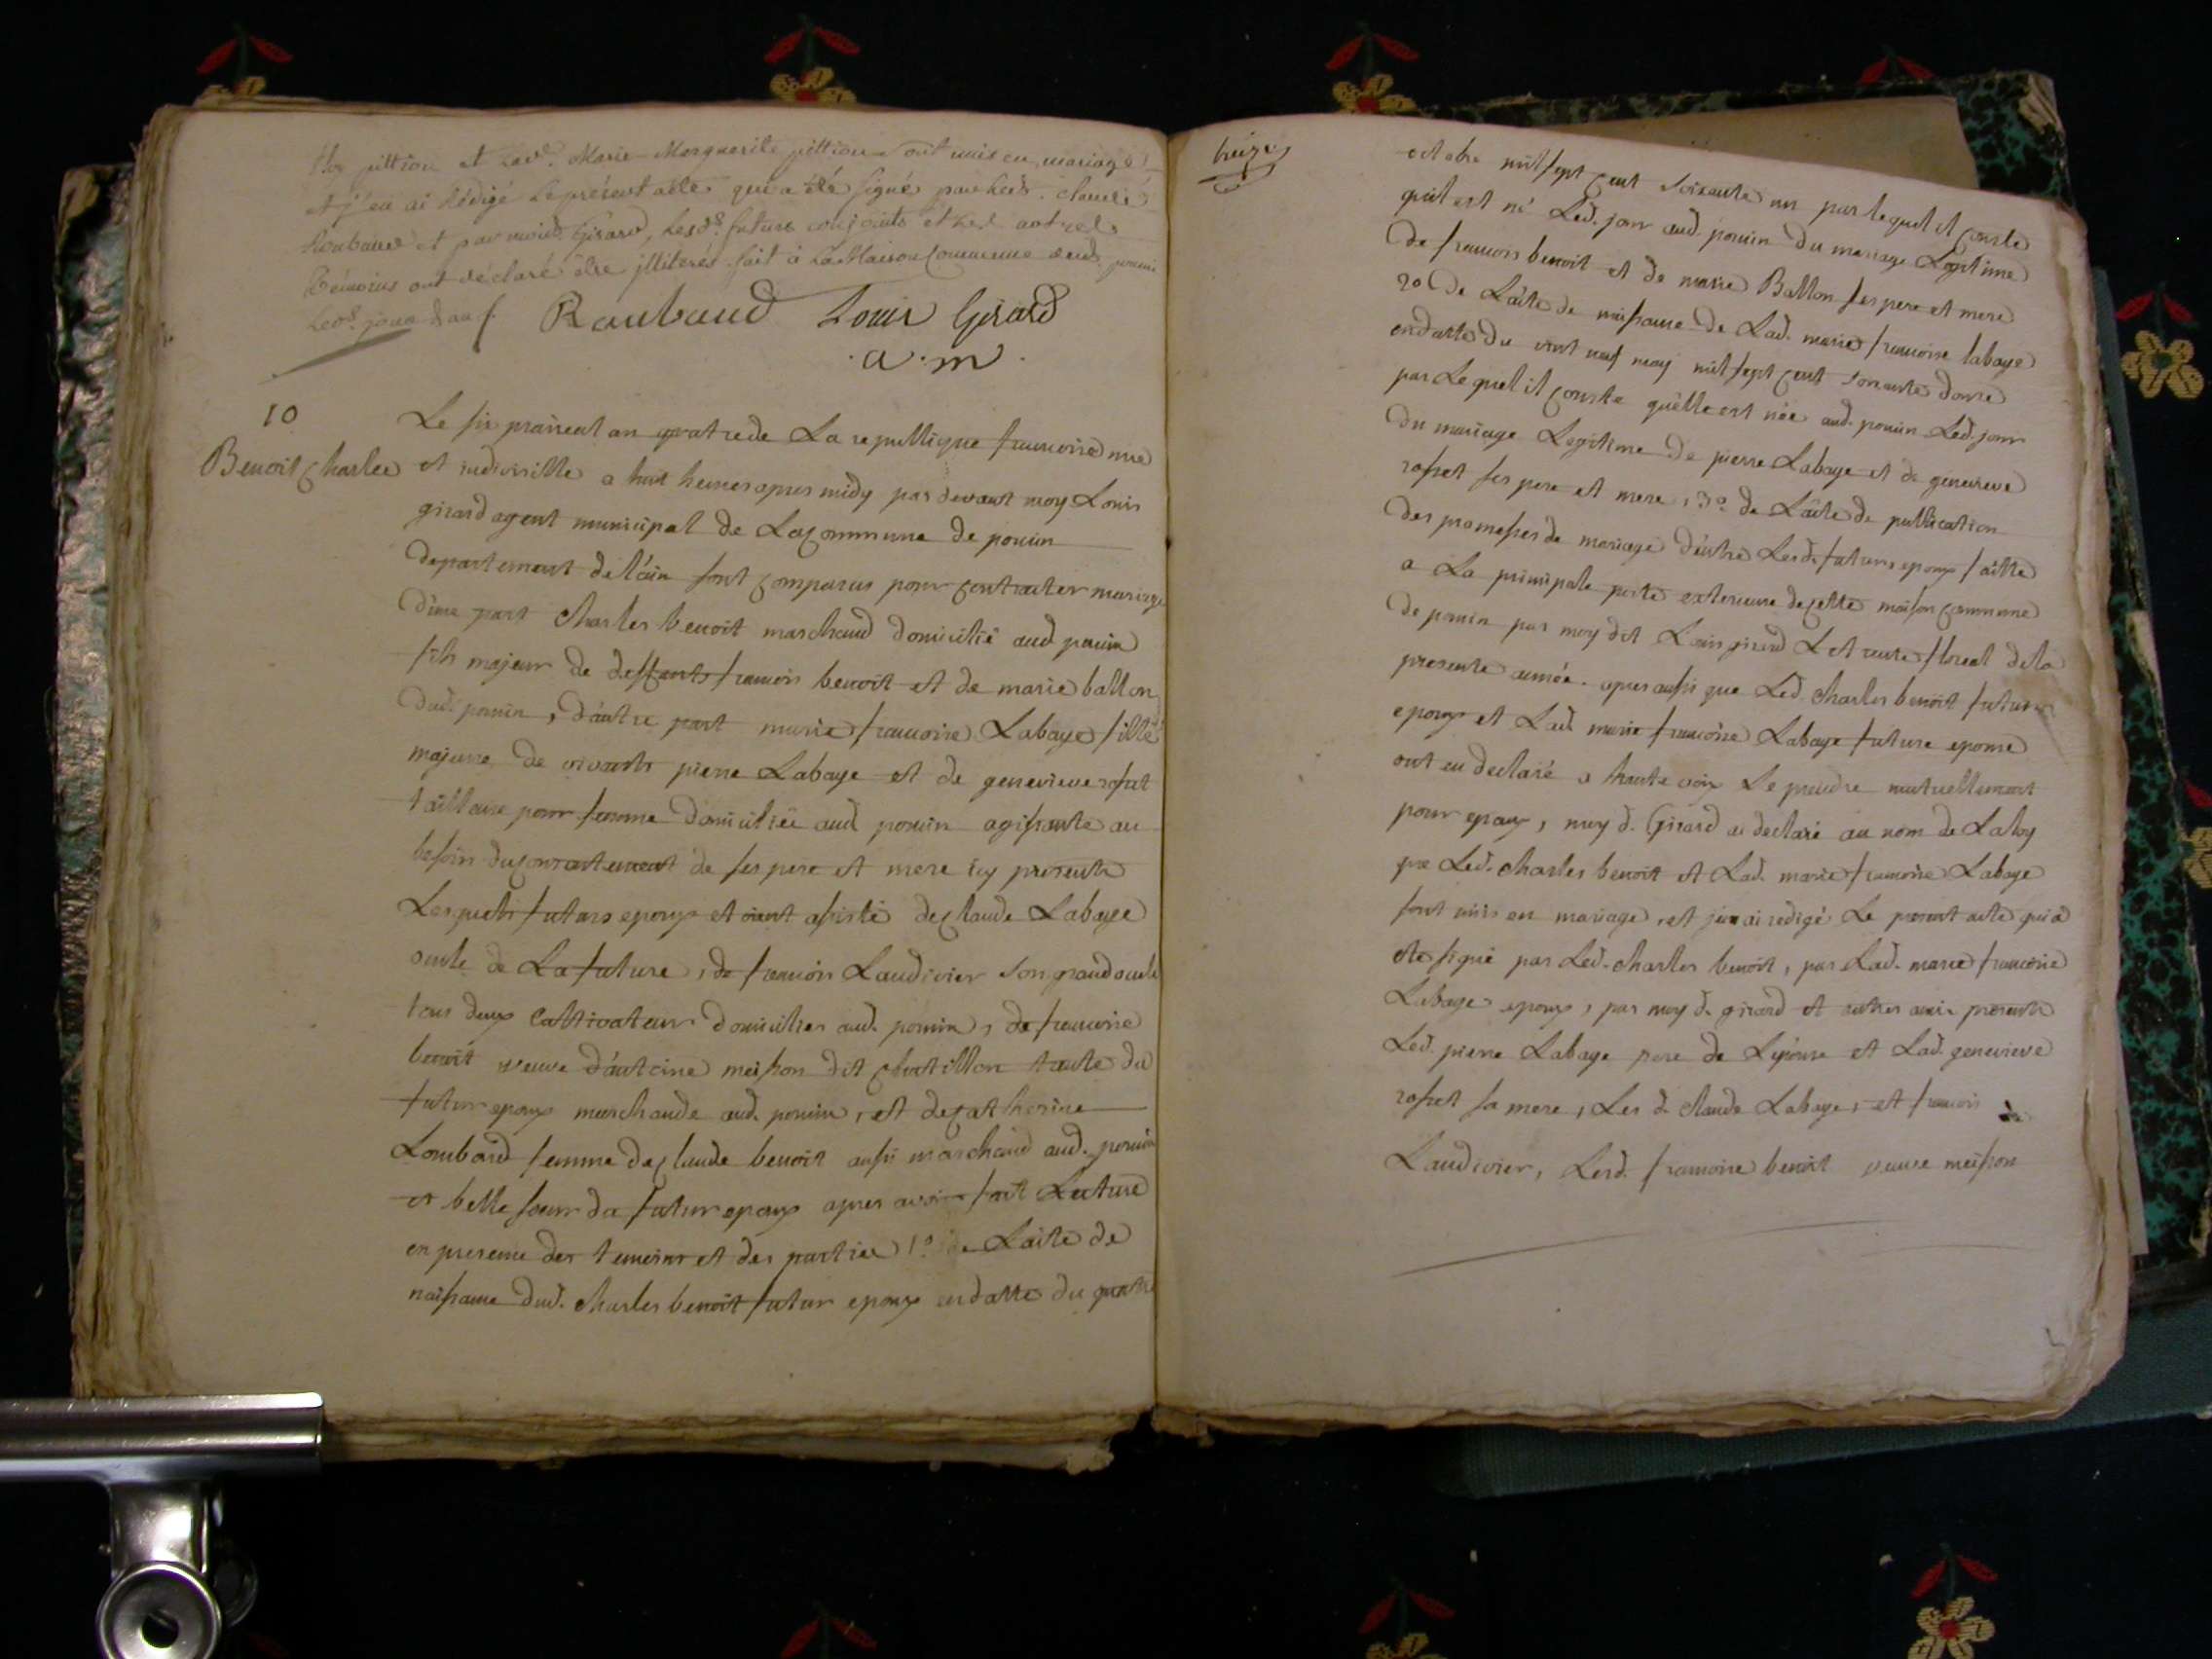 pittion et lad. Marie Marguerite pittion sont unis en mariage
et j'en ai rédigé le présent acte qui a été signé par led. Claude
Raubaud et par moid. Girard, lesds. futurs conjoints et les autres
témoins ont déclaré être illiterés fait à la Maison Commune dud. poncin
les. jour &an f. Raubaud Louis Girard
a.m.
10
Benoit Charles
Le six praireal an quatre de La republique francoise une
et indivisible a huit heures apres midy par devant moy Louis
girard agent municipal de La commune de poncin
departement de l'ain sont comparus pour contracter mariage
d'une part Charles benoit marchand domicilié aud poncin
fils majeur de deffunts francois benoit et de marie ballon
dud. poncin, d'autre part marie francoise Labaye fille
majeure de vivants pierre Labaye et de genevieve rosset
tailleuse pour femme domiciliée aud poncin agissante au
besoin du consentement de ses pere et mere icy presents
Lesquels futurs epoux etoient assisté de claude Labaye
oncle de La future, de francois Laudivier son grand oncle
tous deux Cultivateurs domiciliés aud. poncin, de francoise
benoit veuve d'antoine meisson dit chatillon tante du
futur epoux marchande aud. poncin, et de catherine
Lombard femme de claude benoit aussi marchand aud. poncin
et belle soeur du futur epoux apres avoir fait Lecture
en presence des temoins et des parties 1o. de Lacte de
naissance dud. Charles benoit futur epoux en datte du quatre
treize
octobre mil sept cent soixante un par lequel il conste
quil est né Led. jour aud. poncin du mariage Legitime
de francois benoit et de marie Ballon ses pere et mere
2o de Lacte de naissance de Lad. marie francoise labaye
en datte du vint neuf may mil sept cent soixante douze
par Lequel il conste quelle est née aud. poncin Led. jour
du mariage Legitime de pierre Labaye et de genevieve
rosset ses pere et mere, 3o. de Lacte de publication
des promesses de mariage d'entre Lesd. futurs epoux faitte
a La principale porte exterieure de cette maison commune
de poncin par moy dit Louis girard Le trente floreal de la
presente année. apres aussi que Led. charles benoit futur
epoux et Lad. marie francoise Labaye future epouse
ont eu declaré a haute voix se prendre mutuellement
pour epoux, moy d. Girard ai declaré au nom de La loy
que Led. charles benoit et Lad. marie francoise Labaye
sont unis en mariage, et jen ai redigé Le present acte qui a
eté signé par Led. charles benoit, par Lad. marie francoise
Labaye epoux, par moy d. girard et autres amis presents
Led. pierre Labaye pere de Lepouse et Lad. genevieve
rosset sa mere, Les d. claude Labaye, et francois
Laudivier, Lesd. francoise benoit veuve meisson